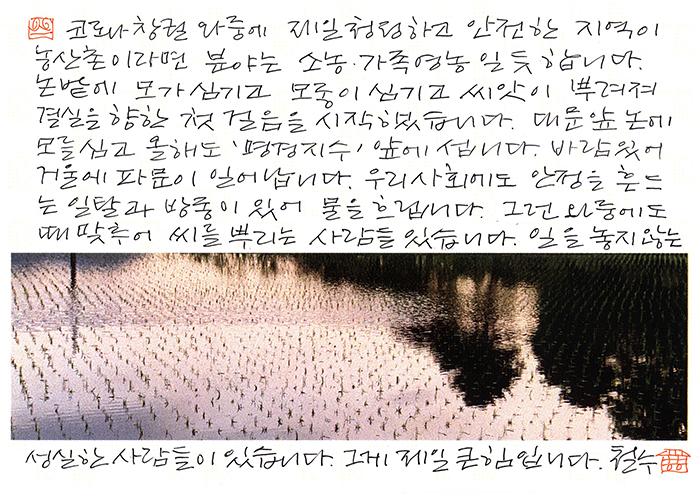 코로나 창궐 와중에 제일 청정하고 안전한 지역이
농산촌이라면 분야는 소농·가족영농일 듯 합니다.
논밭에 모가 심기고 모종이 심기고 씨앗이 뿌려져
결실을 향한 첫 걸음을 시작했습니다. 대문 앞 논에
모를 심고 올해도 '명경지수' 앞에 섭니다. 바람 있어
거울에 파문이 일어납니다. 우리 사회에도 안정을 흔드
는 일탈과 방종이 있어 물을 흐립니다. 그런 와중에도
때 맞추어 씨를 뿌리는 사람들 있습니다. 일을 놓지 않는
성실한 사람들이 있습니다. 그게 제일 큰 힘입니다. 철수